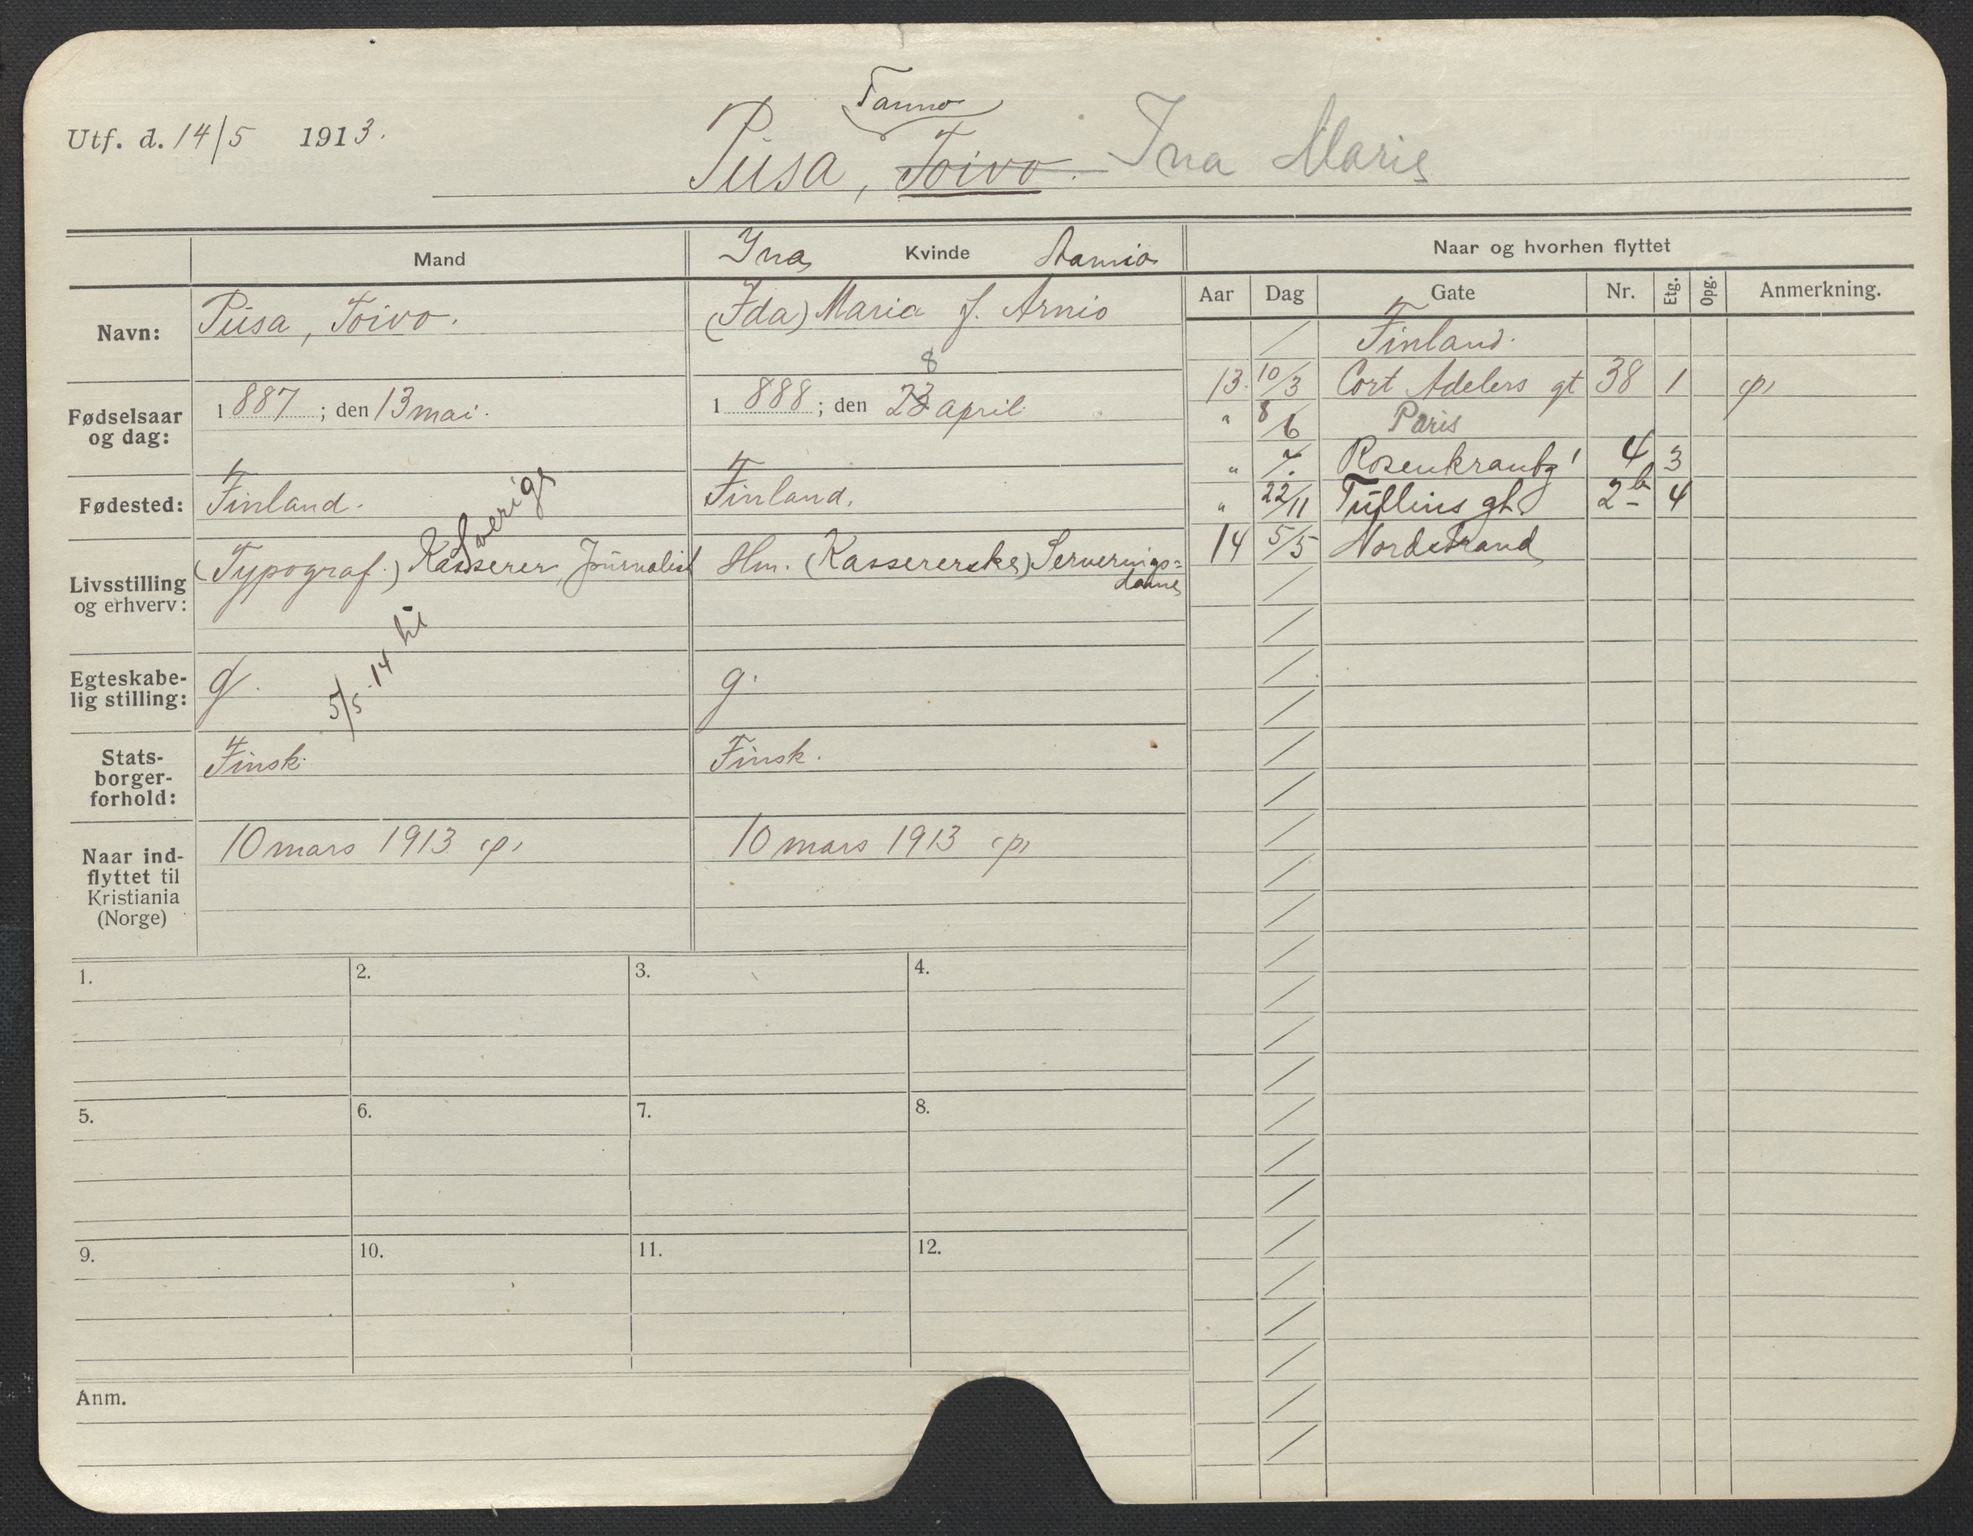 Utf. d. 14/5 1913.
Tanno
Piisa, Toivo. Ina Marie
Mand
Ina Kvinde
Naar og hvorhen flyttet
Navn:
Piisa, Toivo.
(Ida) Maria f. Arnio
Fødselsaar og dag:
1887; den 13 mai.
8
1888; den 23 april
Fødested:
Finland.
Finland.
Livsstilling og erhverv:
(Typograf.) Kasserer, Journalist
Hm. (Kassererske) Serverings=
dame
5/5-14 til Sverige
Egteskabe-
lig stilling:
g.
g.
Stats-
borger-
forhold:
Finsk.
Finsk.
Naar ind-
flyttet til
Kristiania
(Norge)
10 mars 1913 (p)
10 mars 1913 (p)
Aar Dag Gate Nr. Etg. Opg. Anmerkning.
/ Finland.
13. 10/3 Cort Adelers gt 38 1 (p)
" 8/6 Paris
" 7. Rosenkrantzg 4 3
" 22/11 Tullins gt. 2b 4
14 5/5 Nordstrand
1.
2.
3.
4.
5.
6.
7.
8.
9.
10.
11.
12.
Anm.